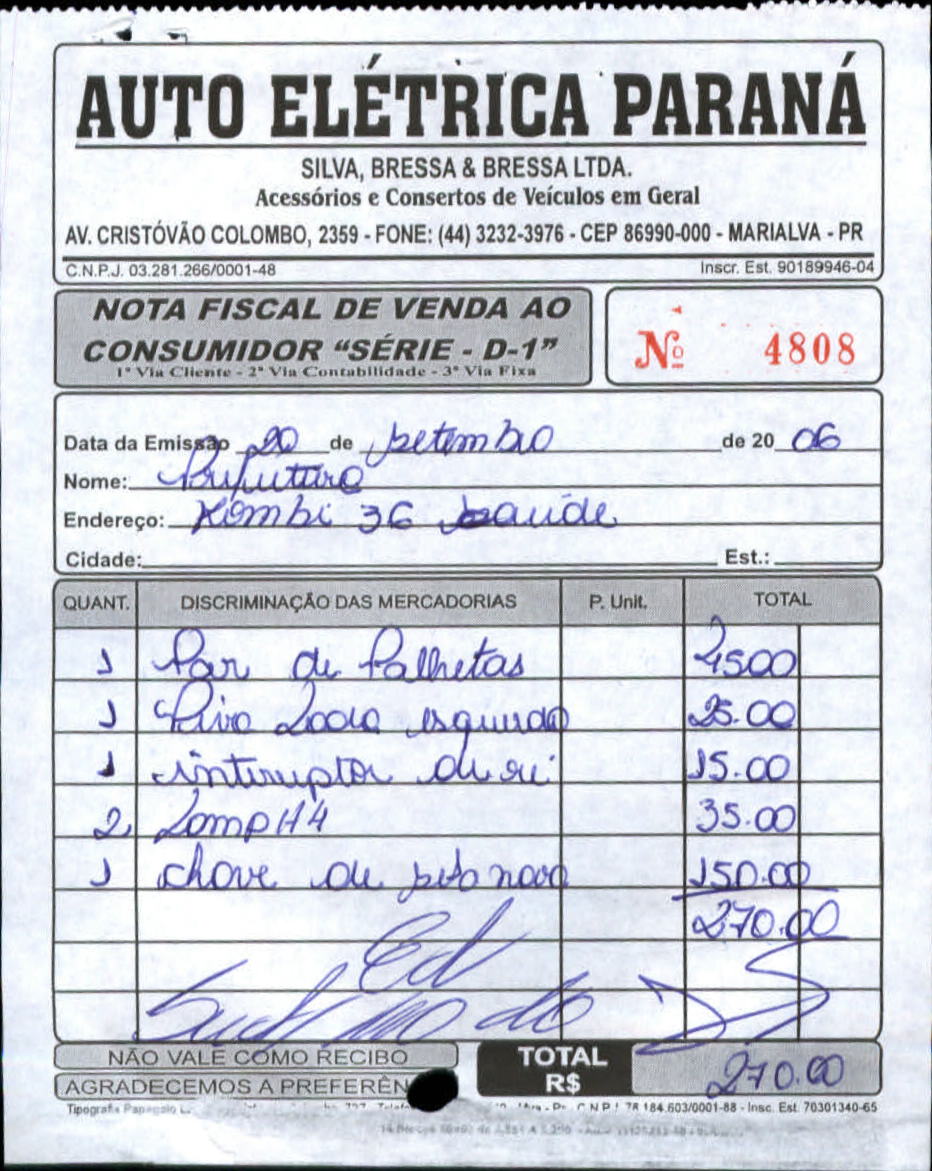 AUTO ELÉTRICA PARANÁ
SILVA, BRESSA & BRESSA LTDA.
Acessórios e Consertos de Veículos em Geral
AV. CRISTÓVÃO COLOMBO, 2359 - FONE: (44) 3232-3976 - CEP 86990-000 - MARIALVA - PR
C.N.P.J. 03.281.266/0001-48 Inscr. Est. 90189946-04
NOTA FISCAL DE VENDA AO
CONSUMIDOR “SÉRIE - D-1”
1ª Via Cliente - 2ª Via Contabilidade - 3ª Via Fixa
Nº 4808
Data da Emissão 20 de setembro de 20 06
Nome: Prefeitura
Endereço: Kombi 36 saúde
Cidade: Est.:
QUANT. DISCRIMINAÇÃO DAS MERCADORIAS P. Unit. TOTAL
1 Par de Palhetas 45.00
1 esquerdo 25.00
1 interuptor de ré 15.00
2 Lamp H4 35.00
1 chave de seta nova 150.00
270.00
NÃO VALE COMO RECIBO
AGRADECEMOS A PREFERÊN
TOTAL
R$ 270.00
Tipografia Papagaio 78.184.603/0001-88 - Insc. Est. 70301340-65